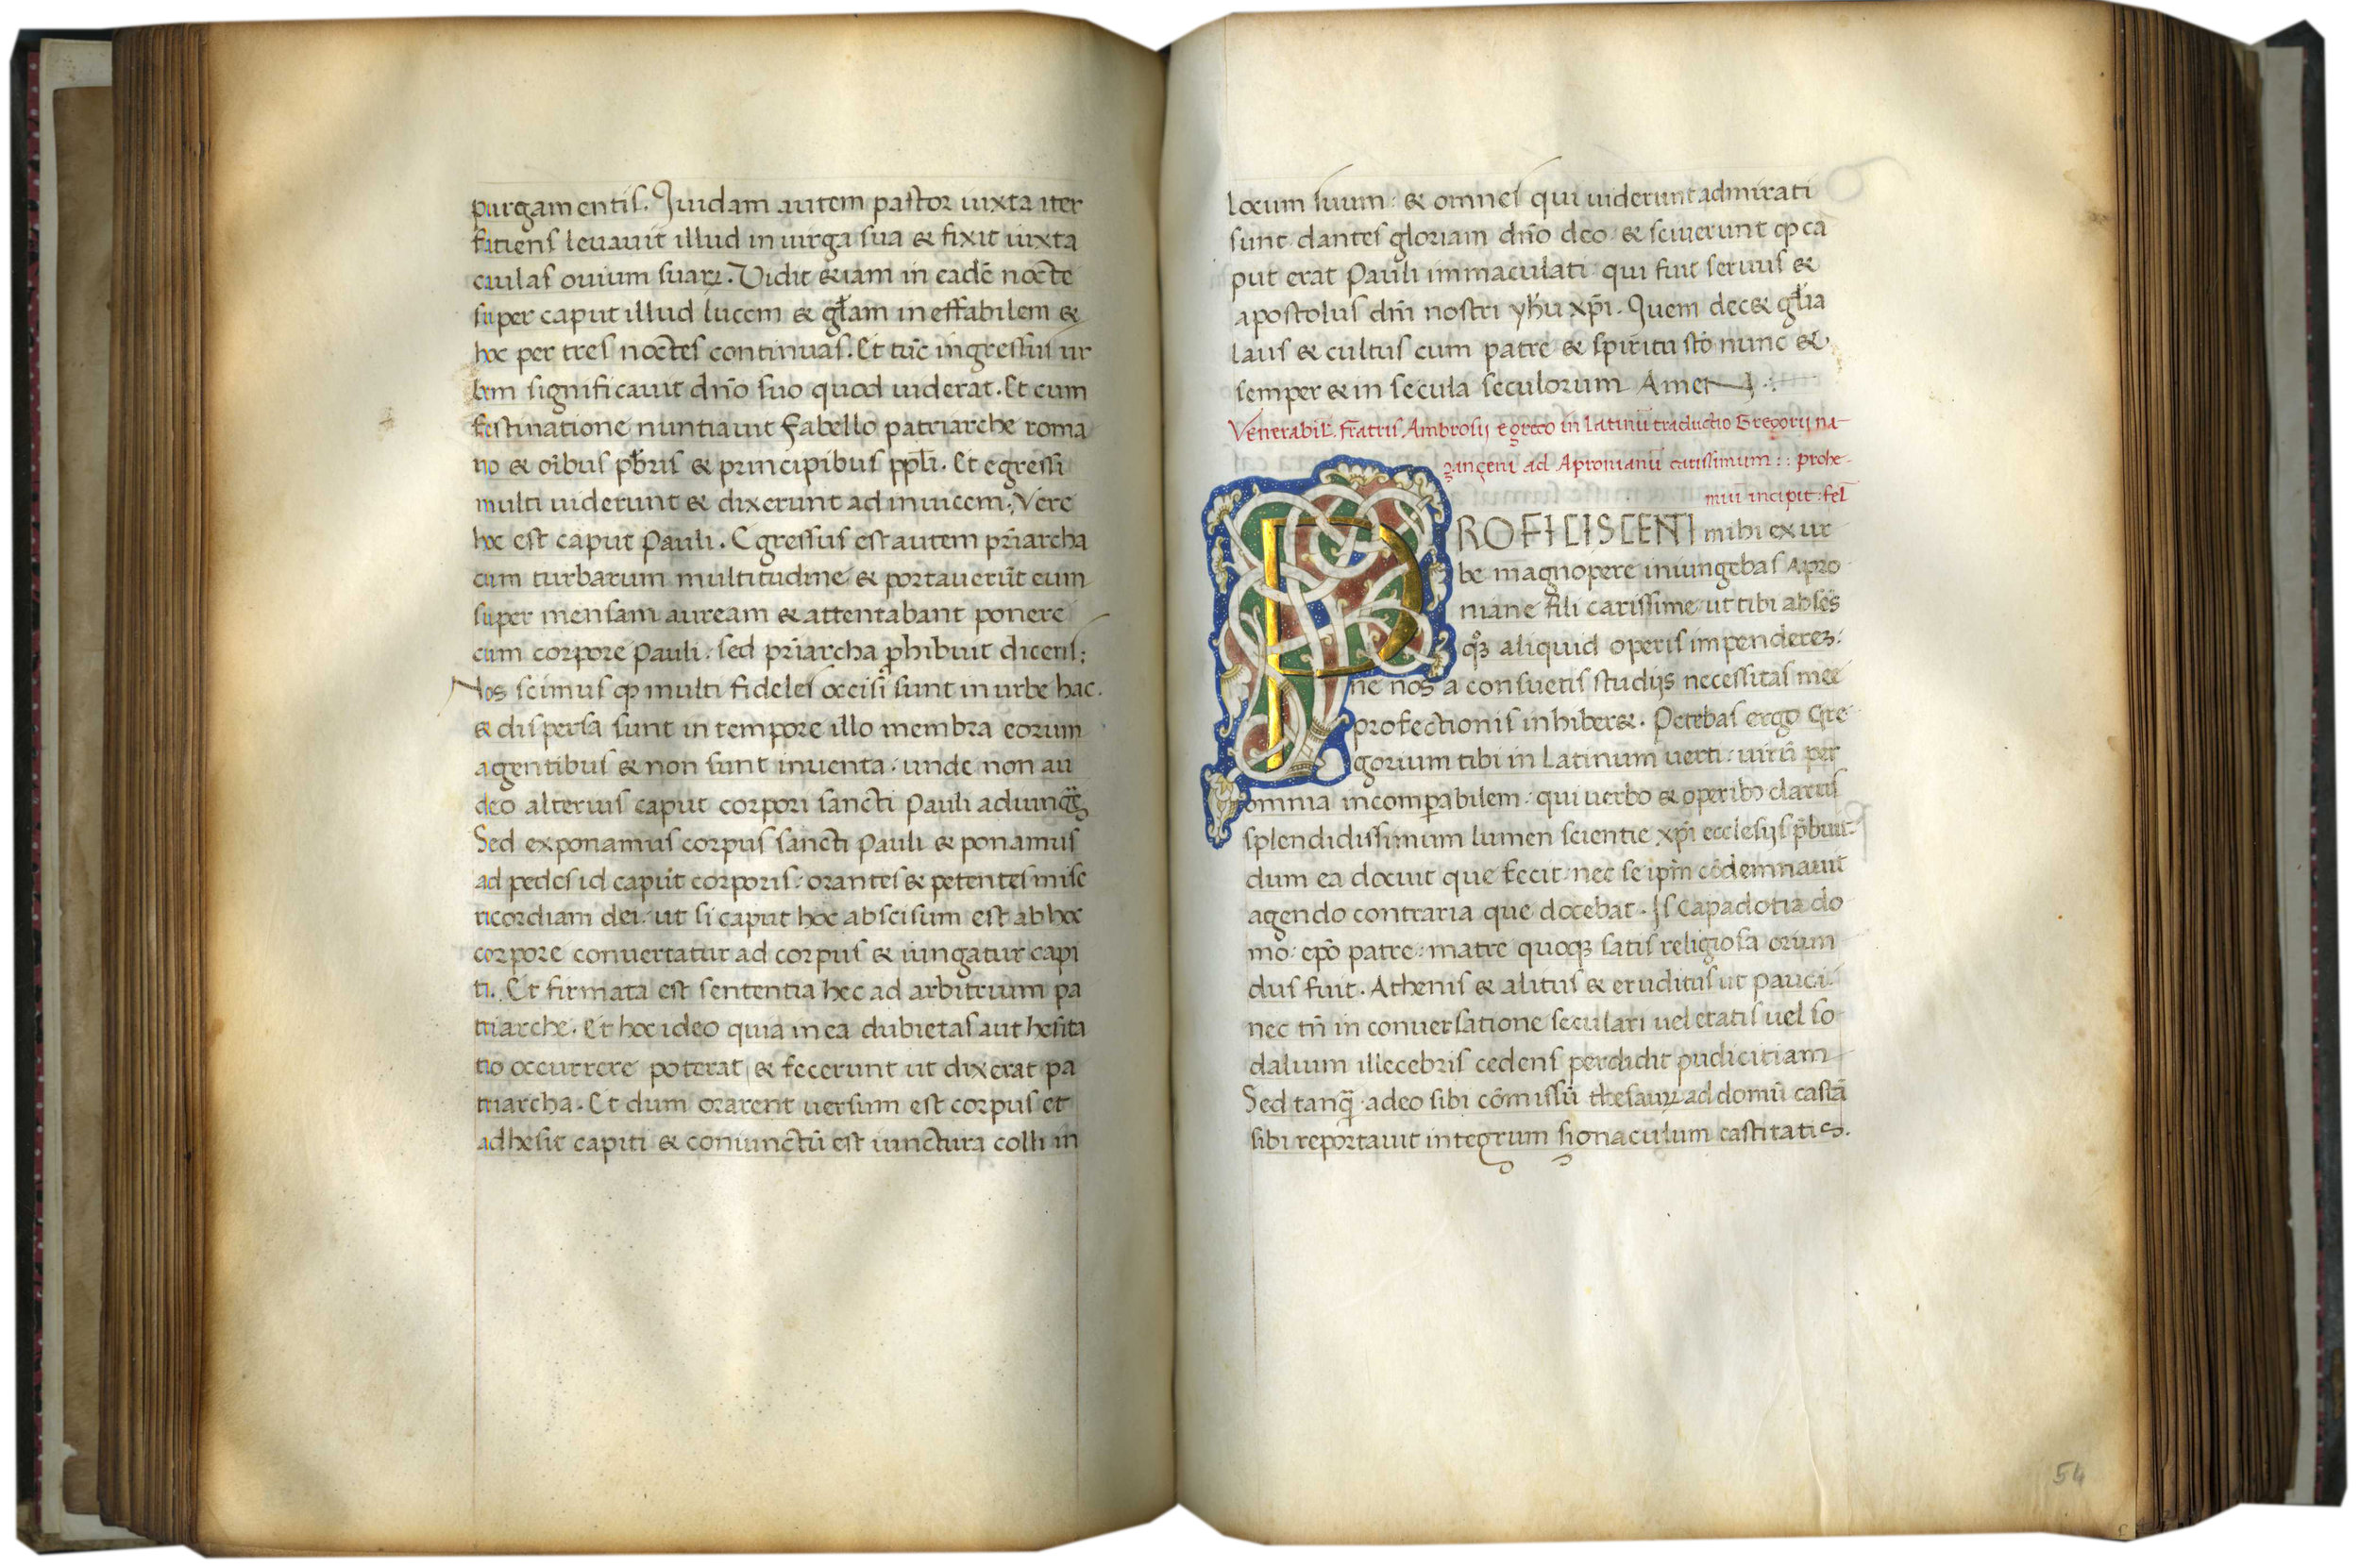 purgamentis. Quidam autem pastor iuxta iter
fatiens leuauit illud in uirga sua & fixit iuxta
caulas ouium suaꝝ. Vidit &iam in eadē nocte
super caput illud lucem & gl̄am ineffabilem &
hoc per tres noctes continuas. Et tūc ingressus ur
bem significauit dn̄o suo quod uiderat. Et cum
festinatione nuntiauit Fabello patriarche roma
no & oībus pb̄ris & principibus ppl̄i. Et egressi
multi uiderunt & dixerunt ad inuicem. Vere
hoc est caput Pauli. Egressus est autem pr̄iarcha
cum turbarum multitudine & portauerūt eum
super mensam auream & attentabant ponere
cum corpore Pauli. sed pr̄iarcha ꝓhibuit dicens;
Nos scimus ꝙ multi fideles occisi sunt in urbe hac.
& dispersa sunt in tempore illo membra eorum
agentibus & non sunt inuenta. unde non au
deo alterius caput corpori sancti Pauli
Sed exponamus corpus sancti Pauli & ponamus
ad pedes id caput corporis. orantes & petentes mise
ricordiam dei. ut si caput hoc abscisum est ab hoc
corpore conuertatur ad corpus & iungatur capi
ti. Et firmata est sententia hec ad arbitrium pa
triarche. Et hoc ideo quia in ea dubietas aut hesita
tio occurrere poterat, & fecerunt ut dixerat pa
triarcha. Et dum orarent uersum est corpus et
adhesit capiti & coniunctū est iunctura colli in
locum suum: & omnes qui uiderunt admirati
sunt dantes gloriam dn̄o deo & sciuerunt ꝙ ca
put erat Pauli immaculati qui fuit seruus &
apostolus dn̄i nostri yh̄u xp̄i. Quem dec& gl̄ia
laus & cultus cum patre & spiritu sc̄o nunc &
semper & in secula seculorum Amen.
Venerabil. fratris Ambrosij e greco in latinū traductio Gregorij na-
zanzeni ad Apronianū carissimum:: prohe-
miu incipit: fel̄
PROFICISCENTI mihi ex ur
be magnopere iniungebas Apro
niane fili carissime ut tibi absēs
quoqꝫ aliquid operis impenderem:
ne nos a consuetis studijs necessitas mee
profectionis inhiber&. Petebas ergo Gre
gorium tibi in Latinum uerti: uirū per
omnia incomꝑabilem: qui uerbo & operibꝰ clarus
splendidissimum lumen scientie xp̄i ecclesijs p̄buit.
dum ea docuit que fecit. nec se ipm̄ cōdemnauit
agendo contraria que docebat. Is Capadotia do
mo: epō patre: matre quoqꝫ satis religiosa oriun
dus fuit. Athenis & alitus & eruditus ut pauci.
nec tn̄ in conuersatione seculari uel etatis uel so
dalium illecebris cedens perdidit pudicitiam
Sed tanq̄ adeo sibi cōmissū thesauꝝ ad domū castā
sibi reportauit integrum signaculum castitatis.
54